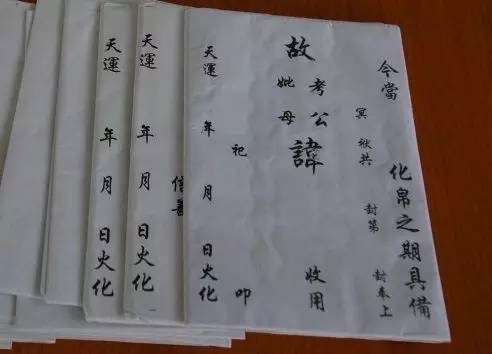 今當 化帛之期具備
冥 袱共 封第 封奉上
故
考公
妣母
諱
收用
祀 叩
天運 年 月 日火化
信善
天運 年 月 日火化
天運 年 月 日火化